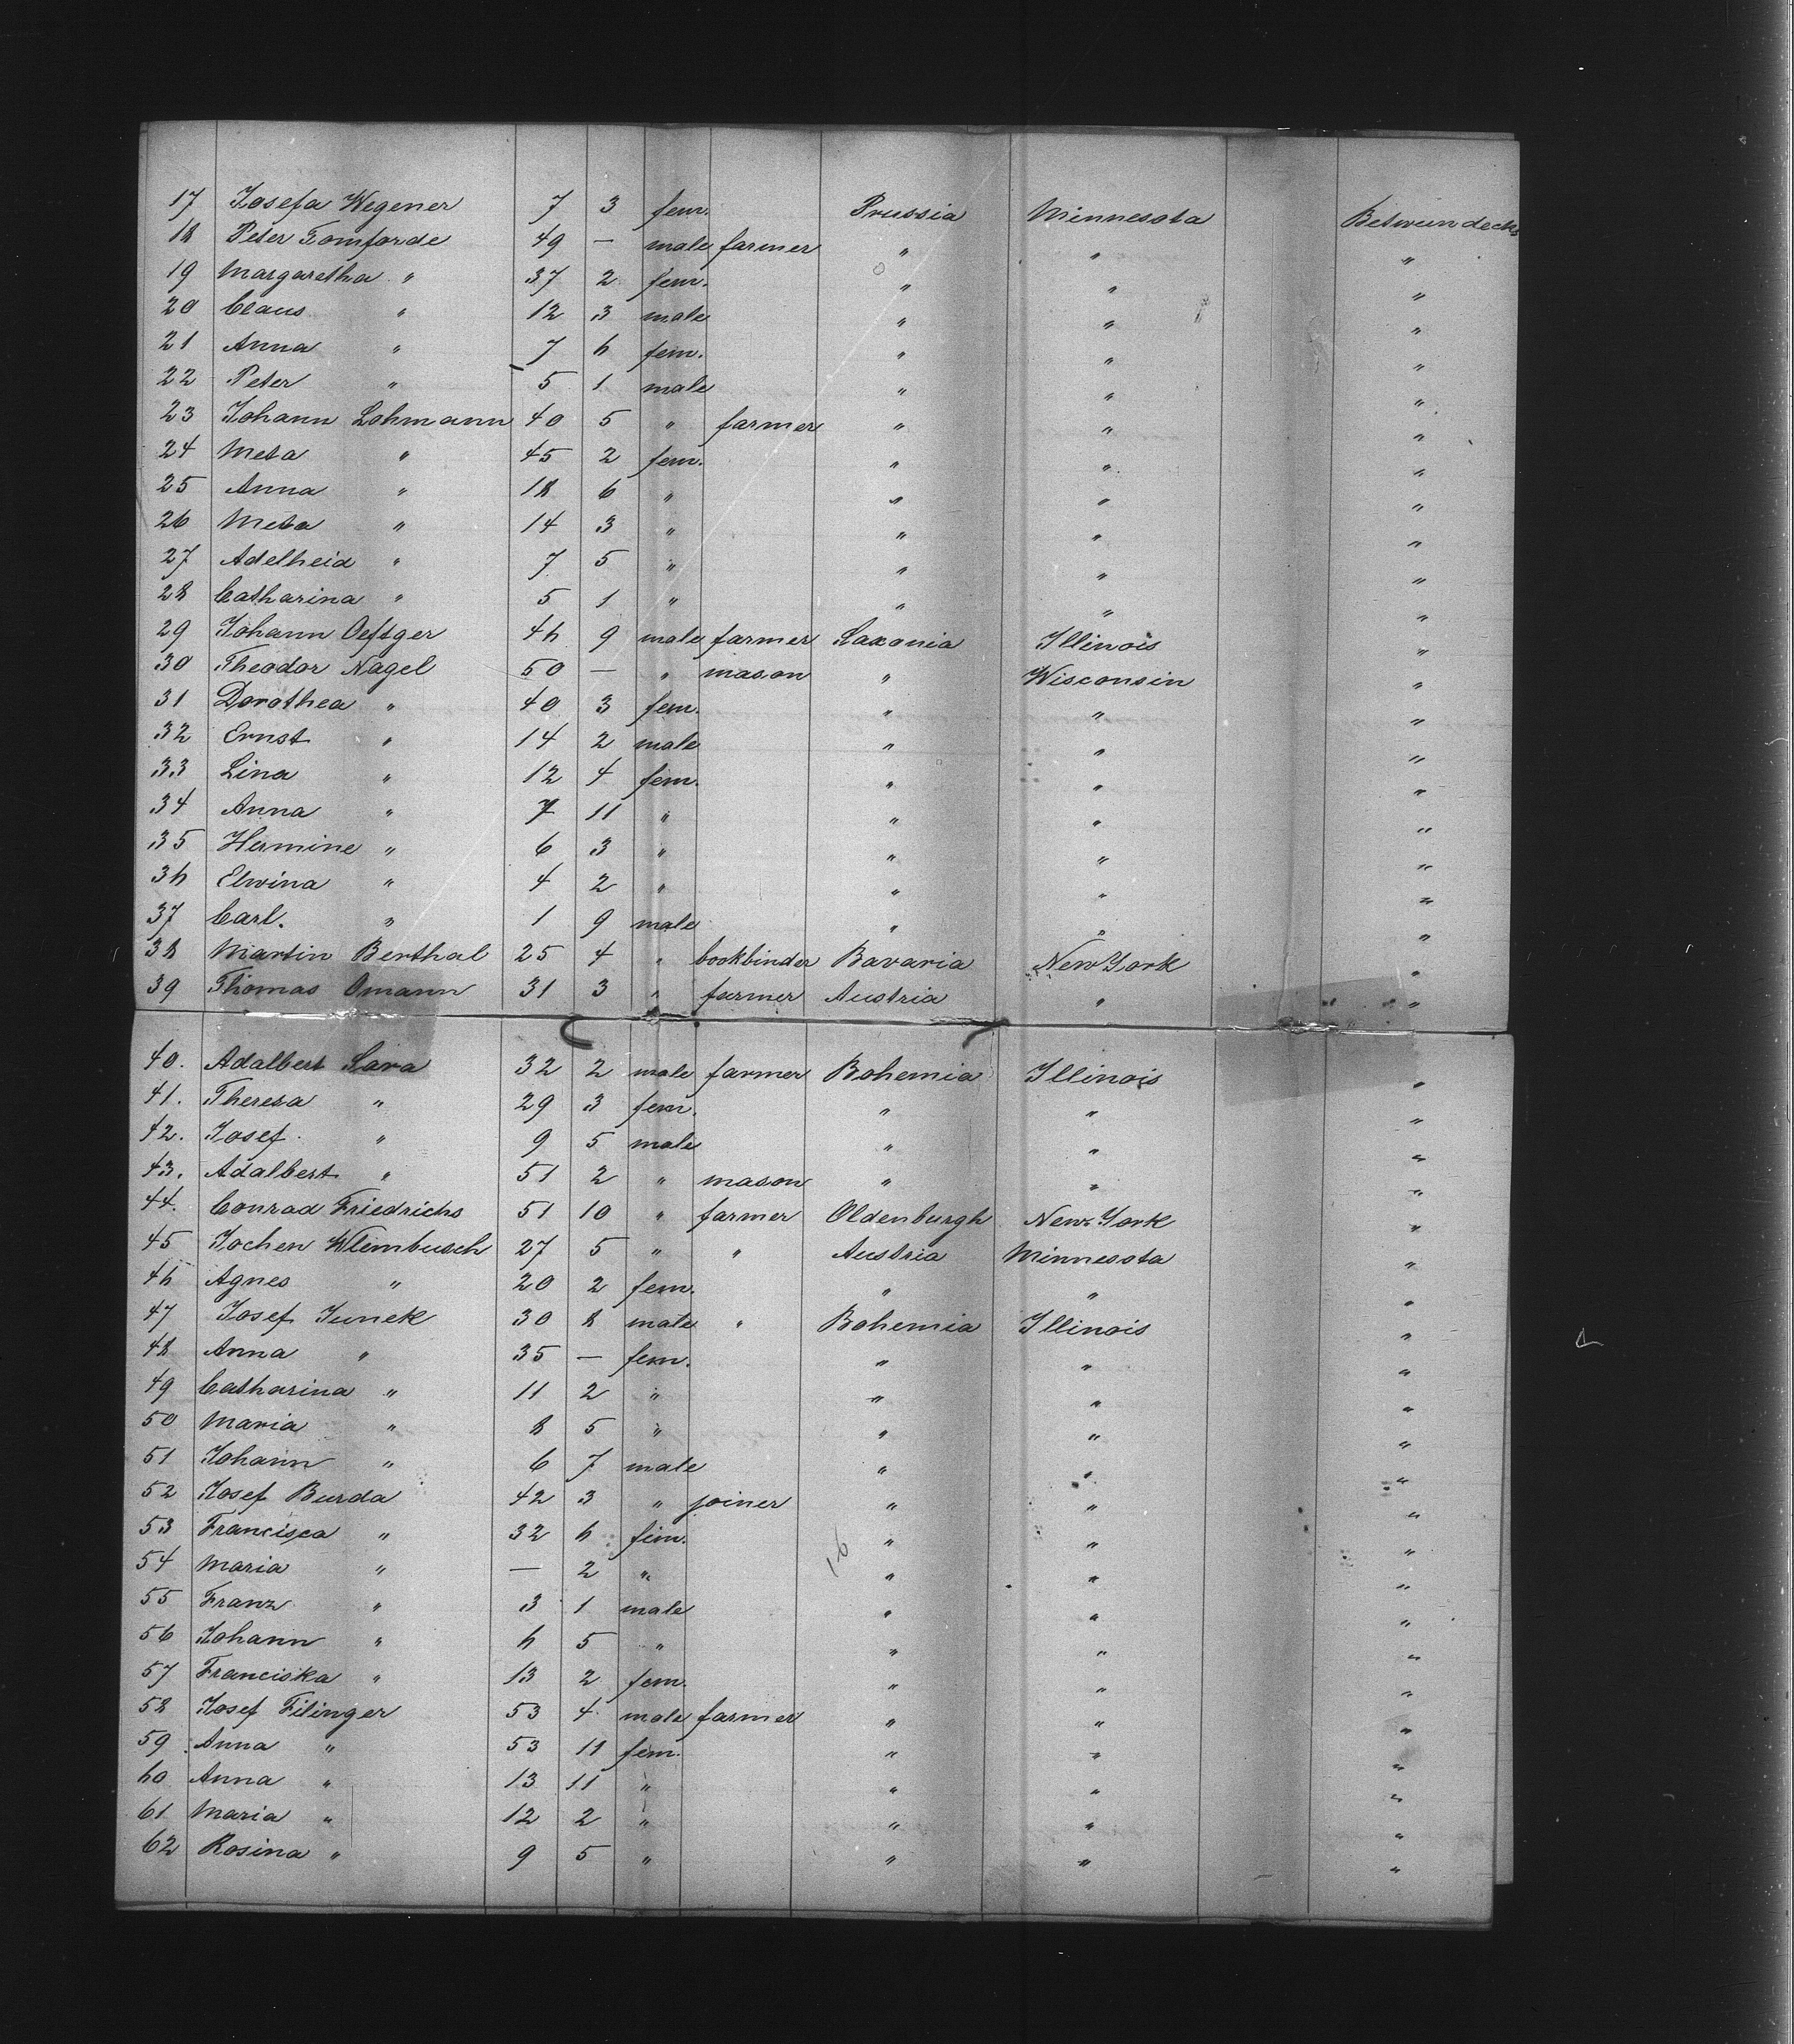 17 Josefa Wegener 7 3 fem. Prussia Minnesota Between decks
18 Peter Tomforde 49 — male farmer " " "
19 Margaretha " 37 2 fem. " " "
20 Claus " 12 3 male " " "
21 Anna " 7 6 fem. " " "
22 Peter " 5 1 male " " "
23 Johann Lohmann 40 5 " farmer " " "
24 Meta " 45 2 fem. " " "
25 Anna " 18 6 " " " "
26 Meta " 14 3 " " " "
27 Adelheid " 7 5 " " " "
28 Catharina " 5 1 " " " "
29 Johann Oeftger 46 9 male farmer Saxonia Illinois "
30 Theodor Nagel 50 — " mason " Wisconsin "
31 Dorothea " 40 3 fem. " " "
32 Ernst " 14 2 male " " "
33 Lina " 12 4 fem. " " "
34 Anna " 7 11 " " " "
35 Hermine " 6 3 " " " "
36 Elwina " 4 2 " " " "
37 Carl. " 1 9 male " " "
38 Martin Berthal 25 4 " bookbinder Bavaria New York "
39 Thomas Omann 31 3 " farmer Austria " "
40. Adalbert Sara 32 2 male farmer Bohemia Illinois "
41. Theresa " 29 3 fem. " " "
42. Josef " 9 5 male " " "
43. Adalbert " 51 2 " mason " " "
44. Conrad Friedrichs 51 10 " farmer Oldenburgh New York "
45 Jochen Wlembusch 27 5 " " Austria Minnesota "
46 Agnes " 20 2 fem. " " "
47 Josef Junek 30 8 male " Bohemia Illinois "
48 Anna " 35 — fem. " " "
49 Catharina " 11 2 " " " "
50 Maria " 8 5 " " " "
51 Johann " 6 7 male " " "
52 Josef Burda 42 3 " joiner " " "
53 Francisca " 32 6 fem. " " "
54 Maria " — 2 " " " "
55 Franz " 3 1 male " " "
56 Johann " 6 5 " " " "
57 Franciska " 13 2 fem. " " "
58 Josef Filinger 53 4 male farmer " " "
59 Anna " 53 11 fem. " " "
60 Anna " 13 11 " " " "
61 Maria " 12 2 " " " "
62 Rosina " 9 5 " " " "